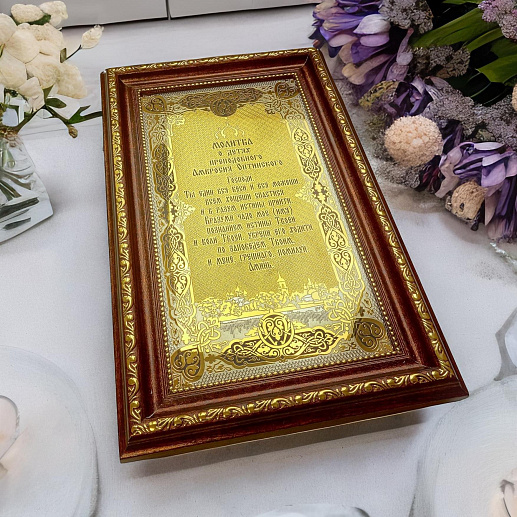 МОЛИТВА
О ДЕТЯХ
ПРЕПОДОБНОГО
АМВРОСИЯ ОПТИНСКОГО
Господи,
Ты один вся веси и вся можеши
всем хощеши спастися
и в разум истины прийти.
Вразуми чадо мое (имя)
познанием истины Твоея
и воли Твоей укрепи его ходити
по заповедем Твоим
и меня, грешнаго, помилуй
Аминь